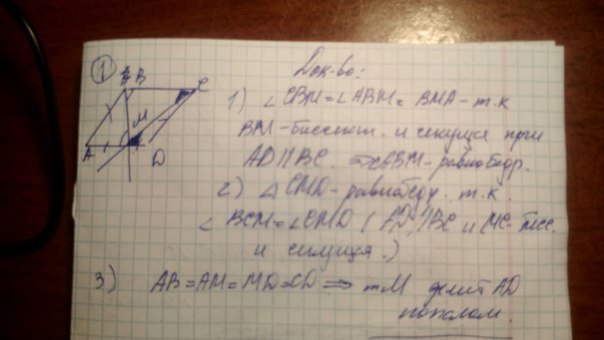 1
B
C
M
A
D
Док-во:
1) ∠CBM=∠ABM=BMA-т.к
BM-биссект. и секущая при
AD||BC. ⇒ ABM-равнобедр.
2) △ CMD-равнобедр. т.к.
∠BCM=∠CMD (AD||BC и MC-бисс.
и секущая.)
3) AB=AM=MD=CD ⇒ т M делит AD
пополам.